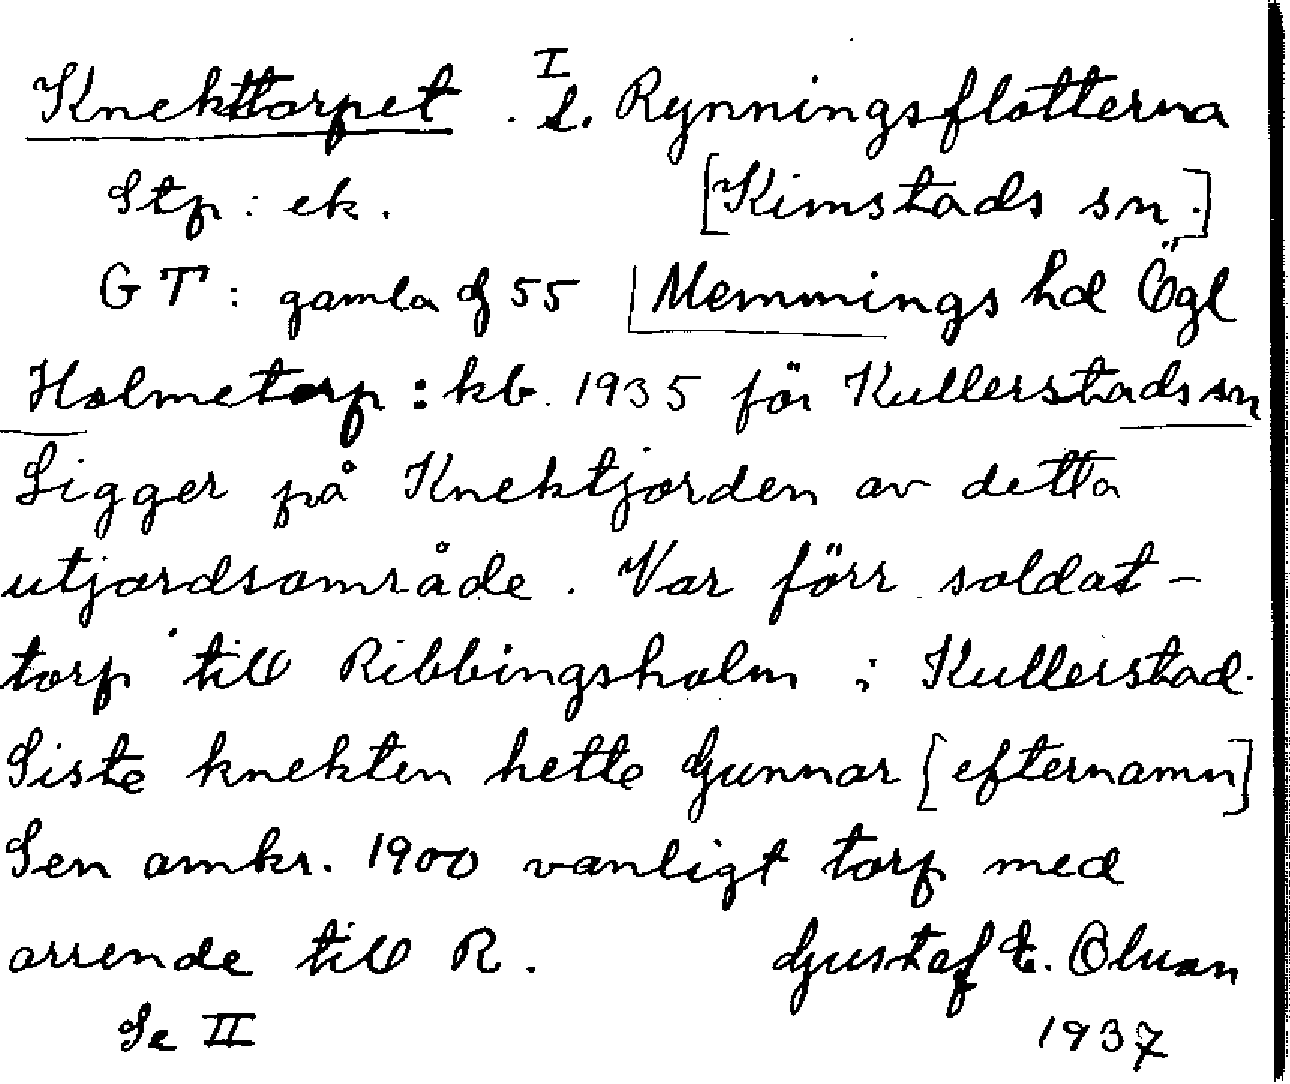 Knekttorpet . I l. Rynningsflotterna
Stp : ek. [Kimstads sn.]
GT : gamla 55 Memmings hd Ögl
Holmetorp : kb. 1935 för Kullerstads sn
Ligger på Knektjorden av detta
utjordsområde . Var förr soldat-
torp till Ribbingsholm i Kullerstad.
Siste knekten hette Gunnar [efternamn]
Sen omkr. 1900 vanligt torp med
arrende till R. Gustaf E. Olsson
Se II 1937